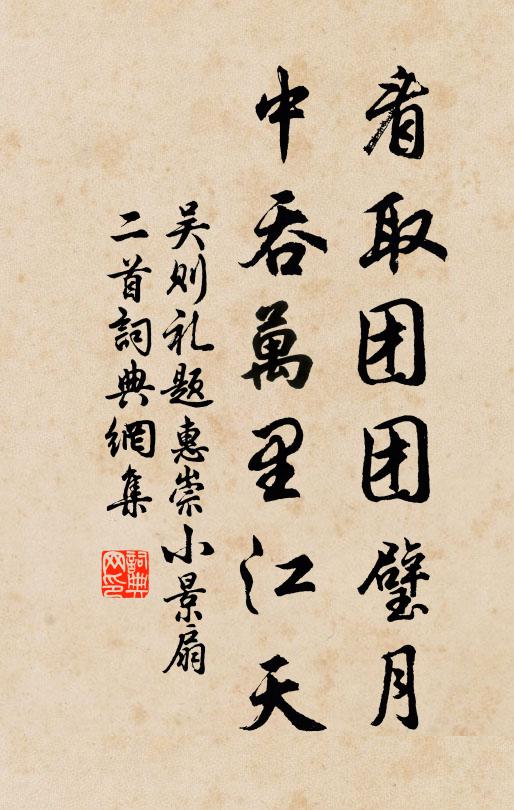 看取团团璧月
中吞萬里江天
吴则礼题惠崇小景扇
二首詞典網集
詞典
网印